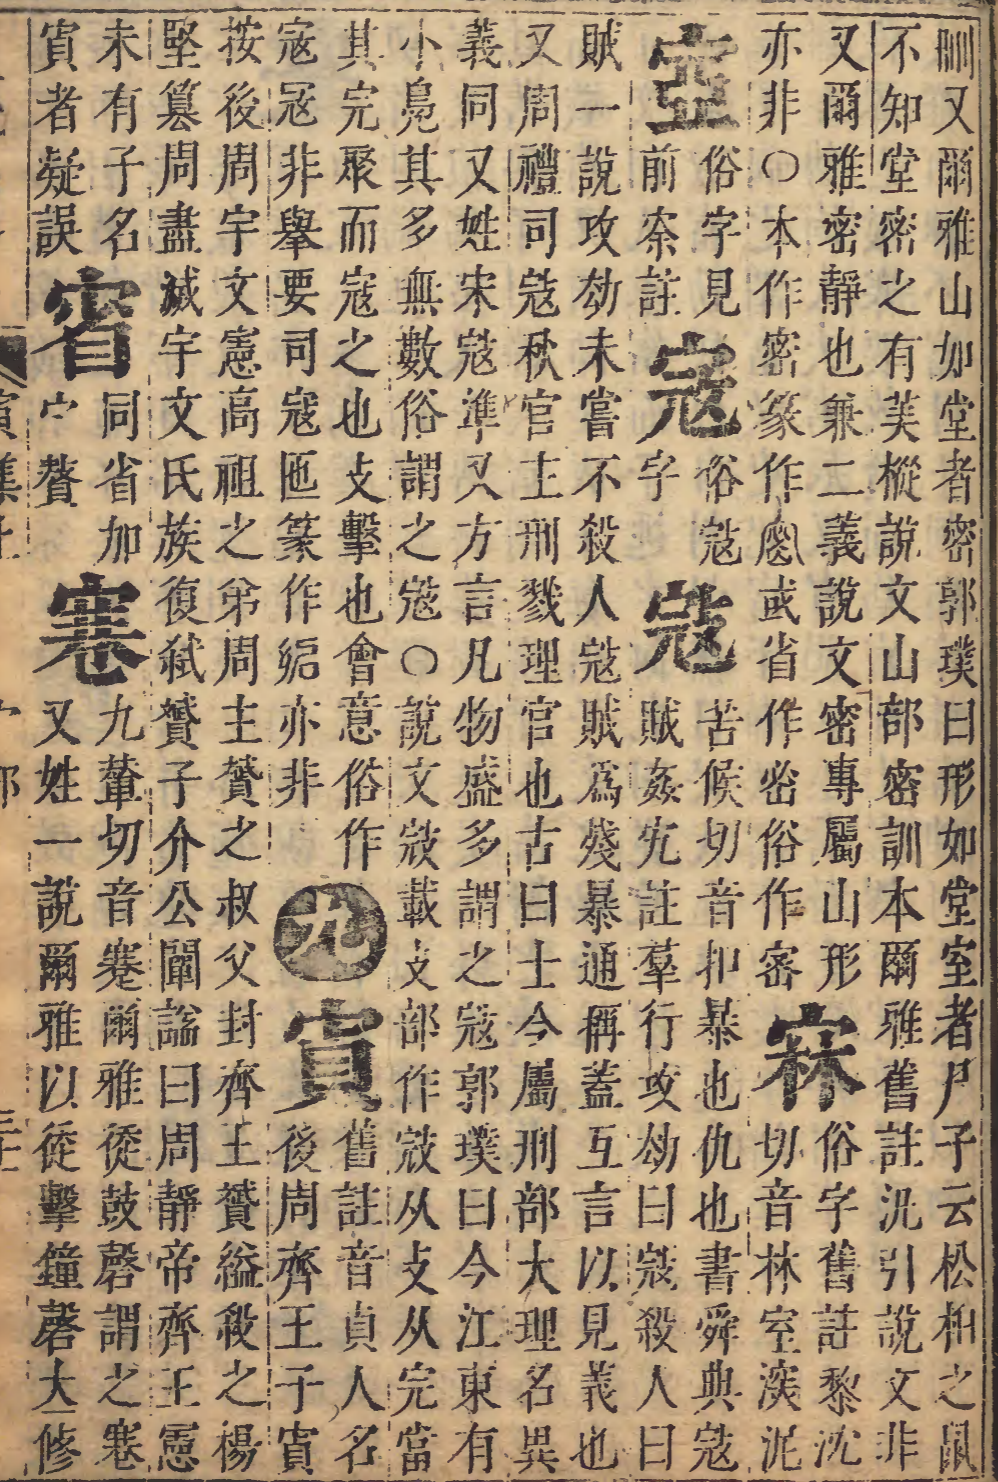 刪又爾雅山如堂者密郭璞曰形如堂室者尸子云松柏之鼠
不知堂密之有美樅說文山部密訓本爾雅舊註汎引說文非
又爾雅密靜也兼二義說文密專屬山形
亦非○本作密篆作或省作宓俗作宻
俗字舊註黎沈
切音林室深泥
俗字見
前奈註
寇
俗㓂
字
㓂
苦候切音扣暴也仇也書舜典㓂
賊姦宄註羣行攻劫曰㓂殺人曰
賊一說攻劫未嘗不殺人㓂賊爲殘暴通稱蓋互言以見義也
又周禮司㓂秋官主刑戮理官也古曰士今屬刑部大理名異
義同又姓宋㓂準又方言凡物盛多謂之寇郭璞曰今江東有
小鳧其多無數俗謂之㓂○說文㓂載攴部作㓂从攴从完當
其完聚而寇之也攴擊也會意俗作
寇冦非舉要司寇匜篆作亦非
九
寊
舊註音貞人名
後周齊王子寊
按後周宇文憲高祖之弟周主贇之叔父封齊王贇縊殺之楊
堅篡周盡滅宇文氏族復弒贇子介公闡謚曰周靜帝齊王憲
未有子名
寊者疑誤
同省加
宀贅
寋
九輦切音蹇爾雅徒鼓磬謂之寋
又姓一說爾雅以徒擊鐘磬大修